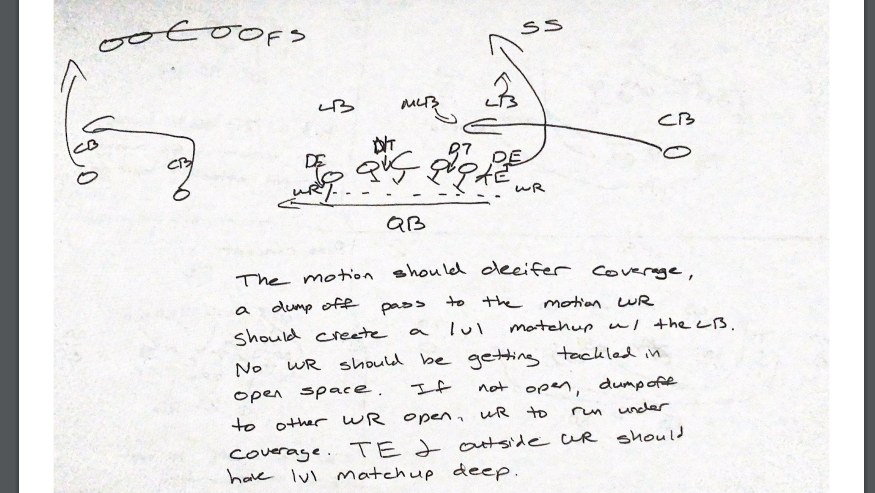 FS
SS
LB
MLB
LB
CB
CB
CB
DE
DT
DT
DE
TE
WR
WR
QB
The motion should decifer coverage,
a dump off pass to the motion WR
should create a 1v1 matchup w/ the LB.
No WR should be getting tackled in
open space. If not open, dumpoff
to other WR open, WR to run under
coverage. TE & outside WR should
have 1v1 matchup deep.